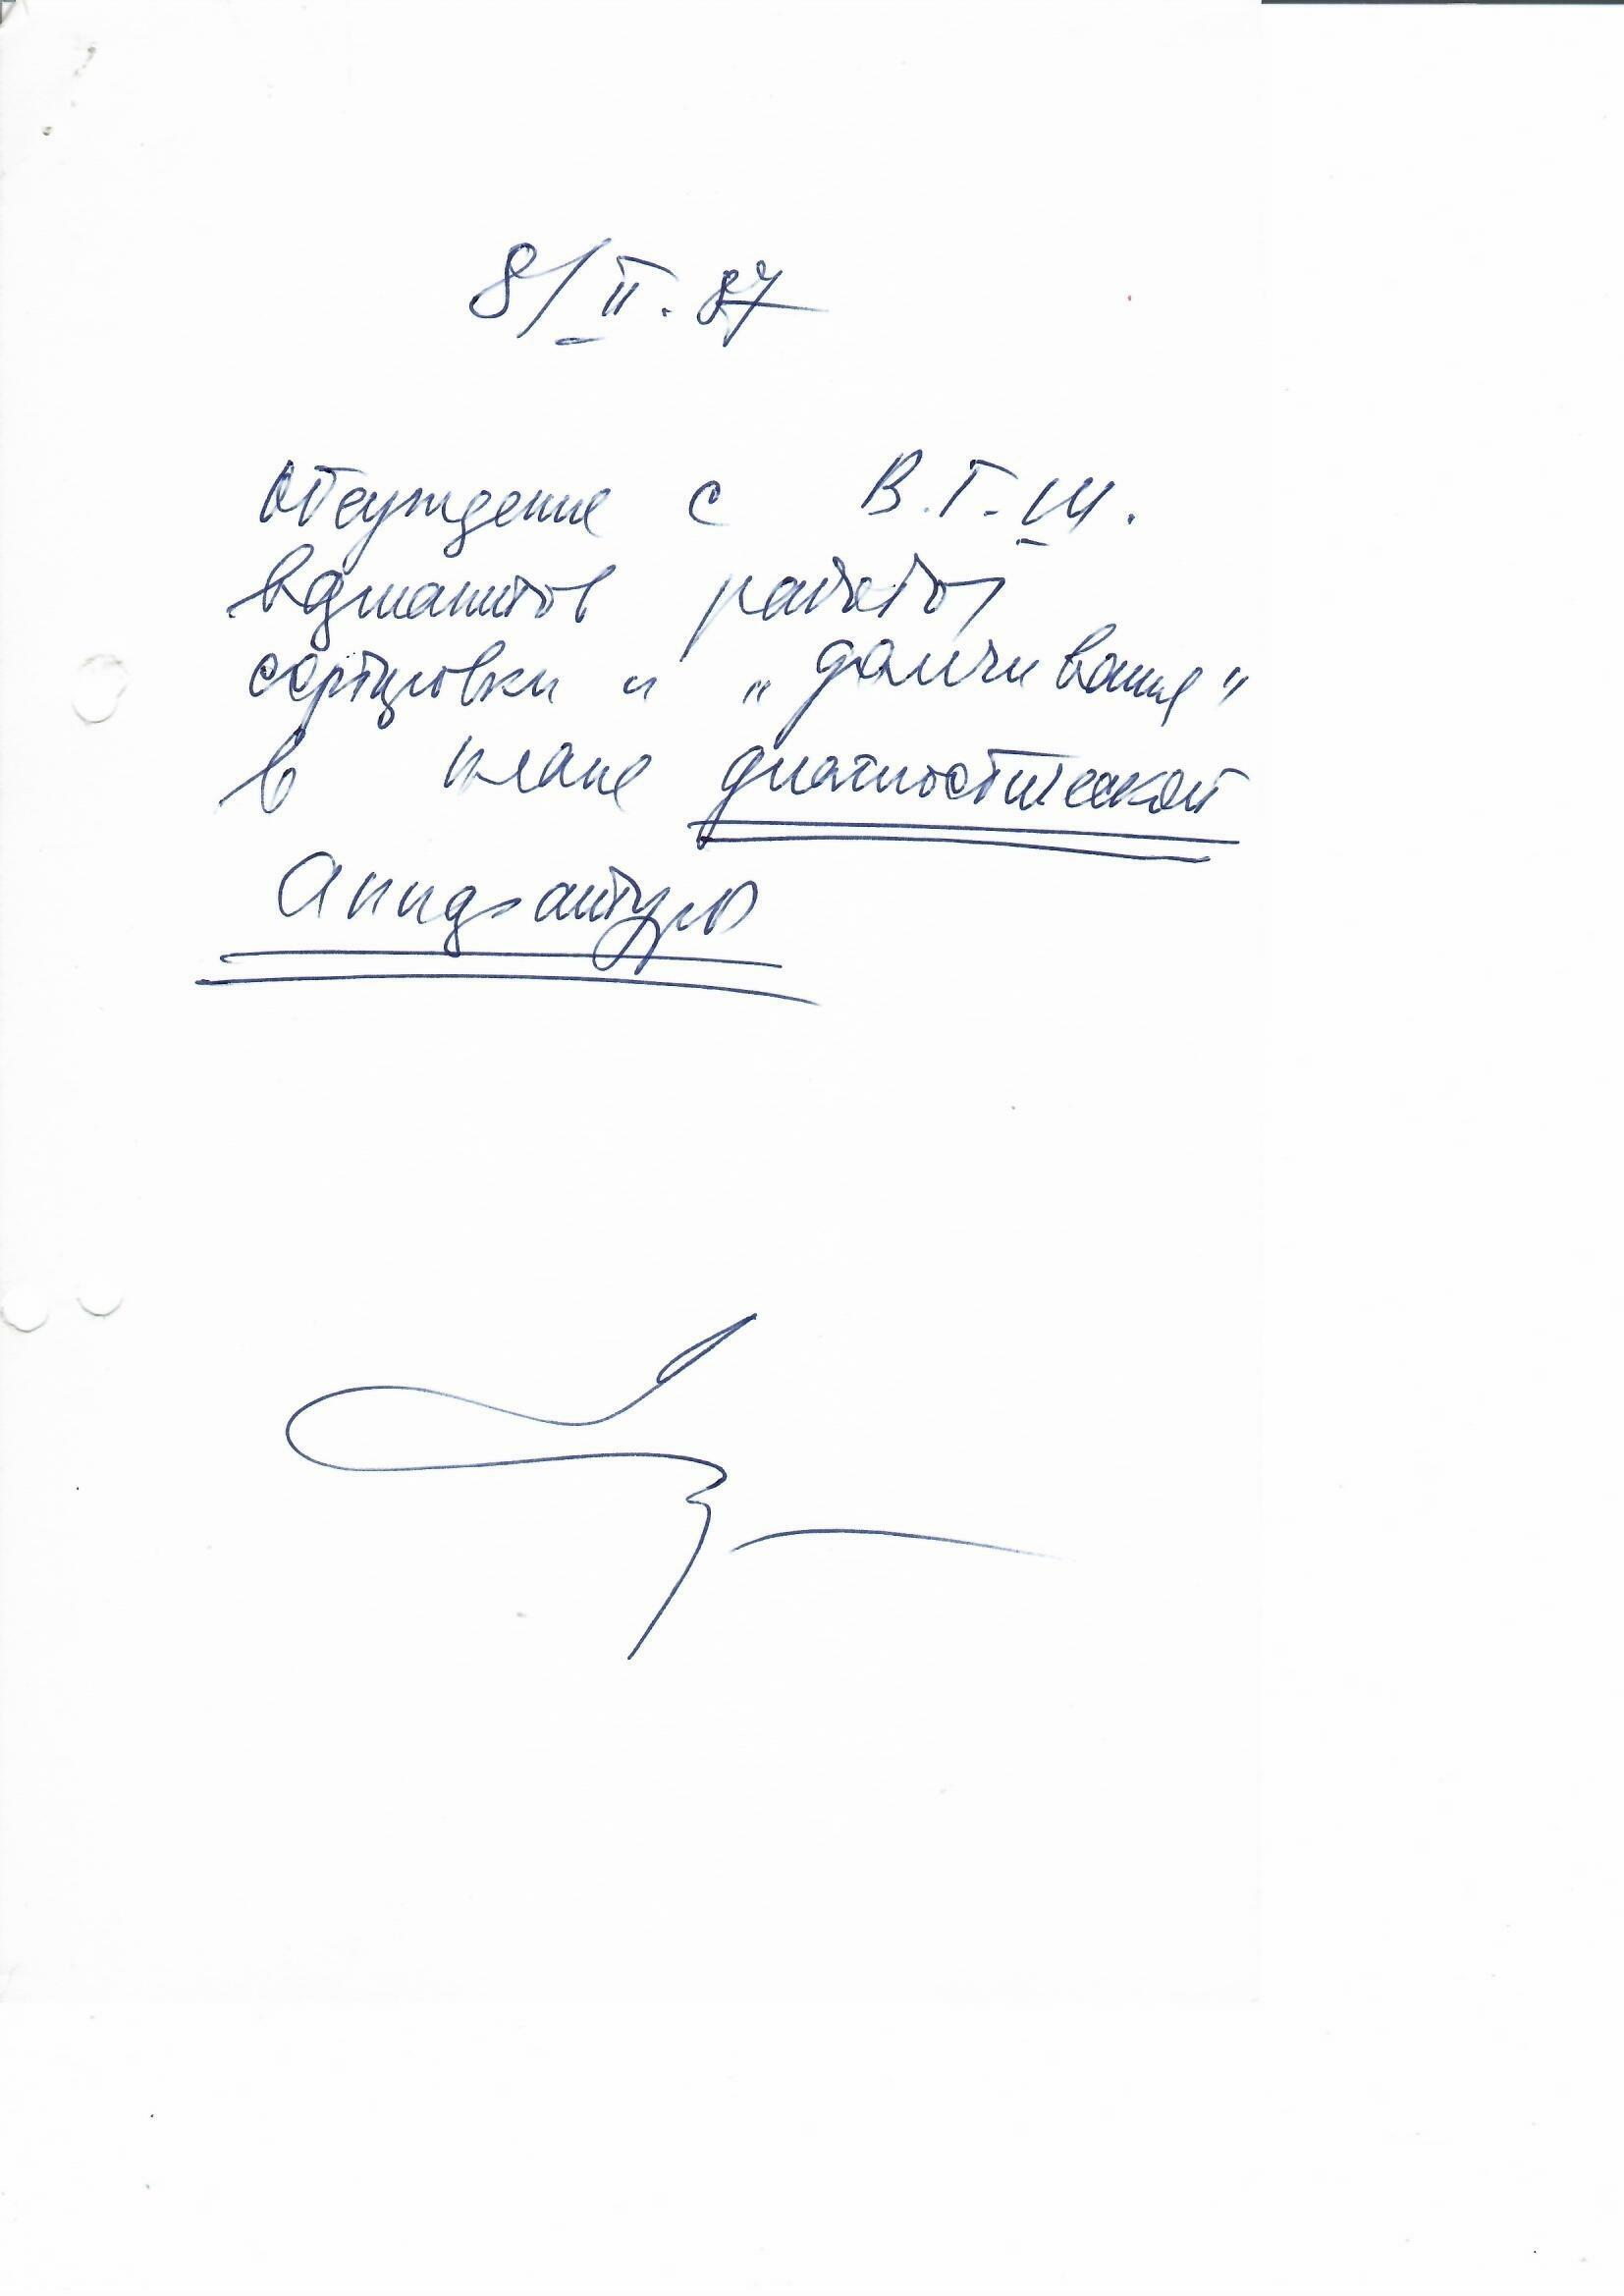 8/II.87
Обсуждение с В.Г.Ш.
вариантов работы
сортировки и „
в плане диагностической
аппаратуры